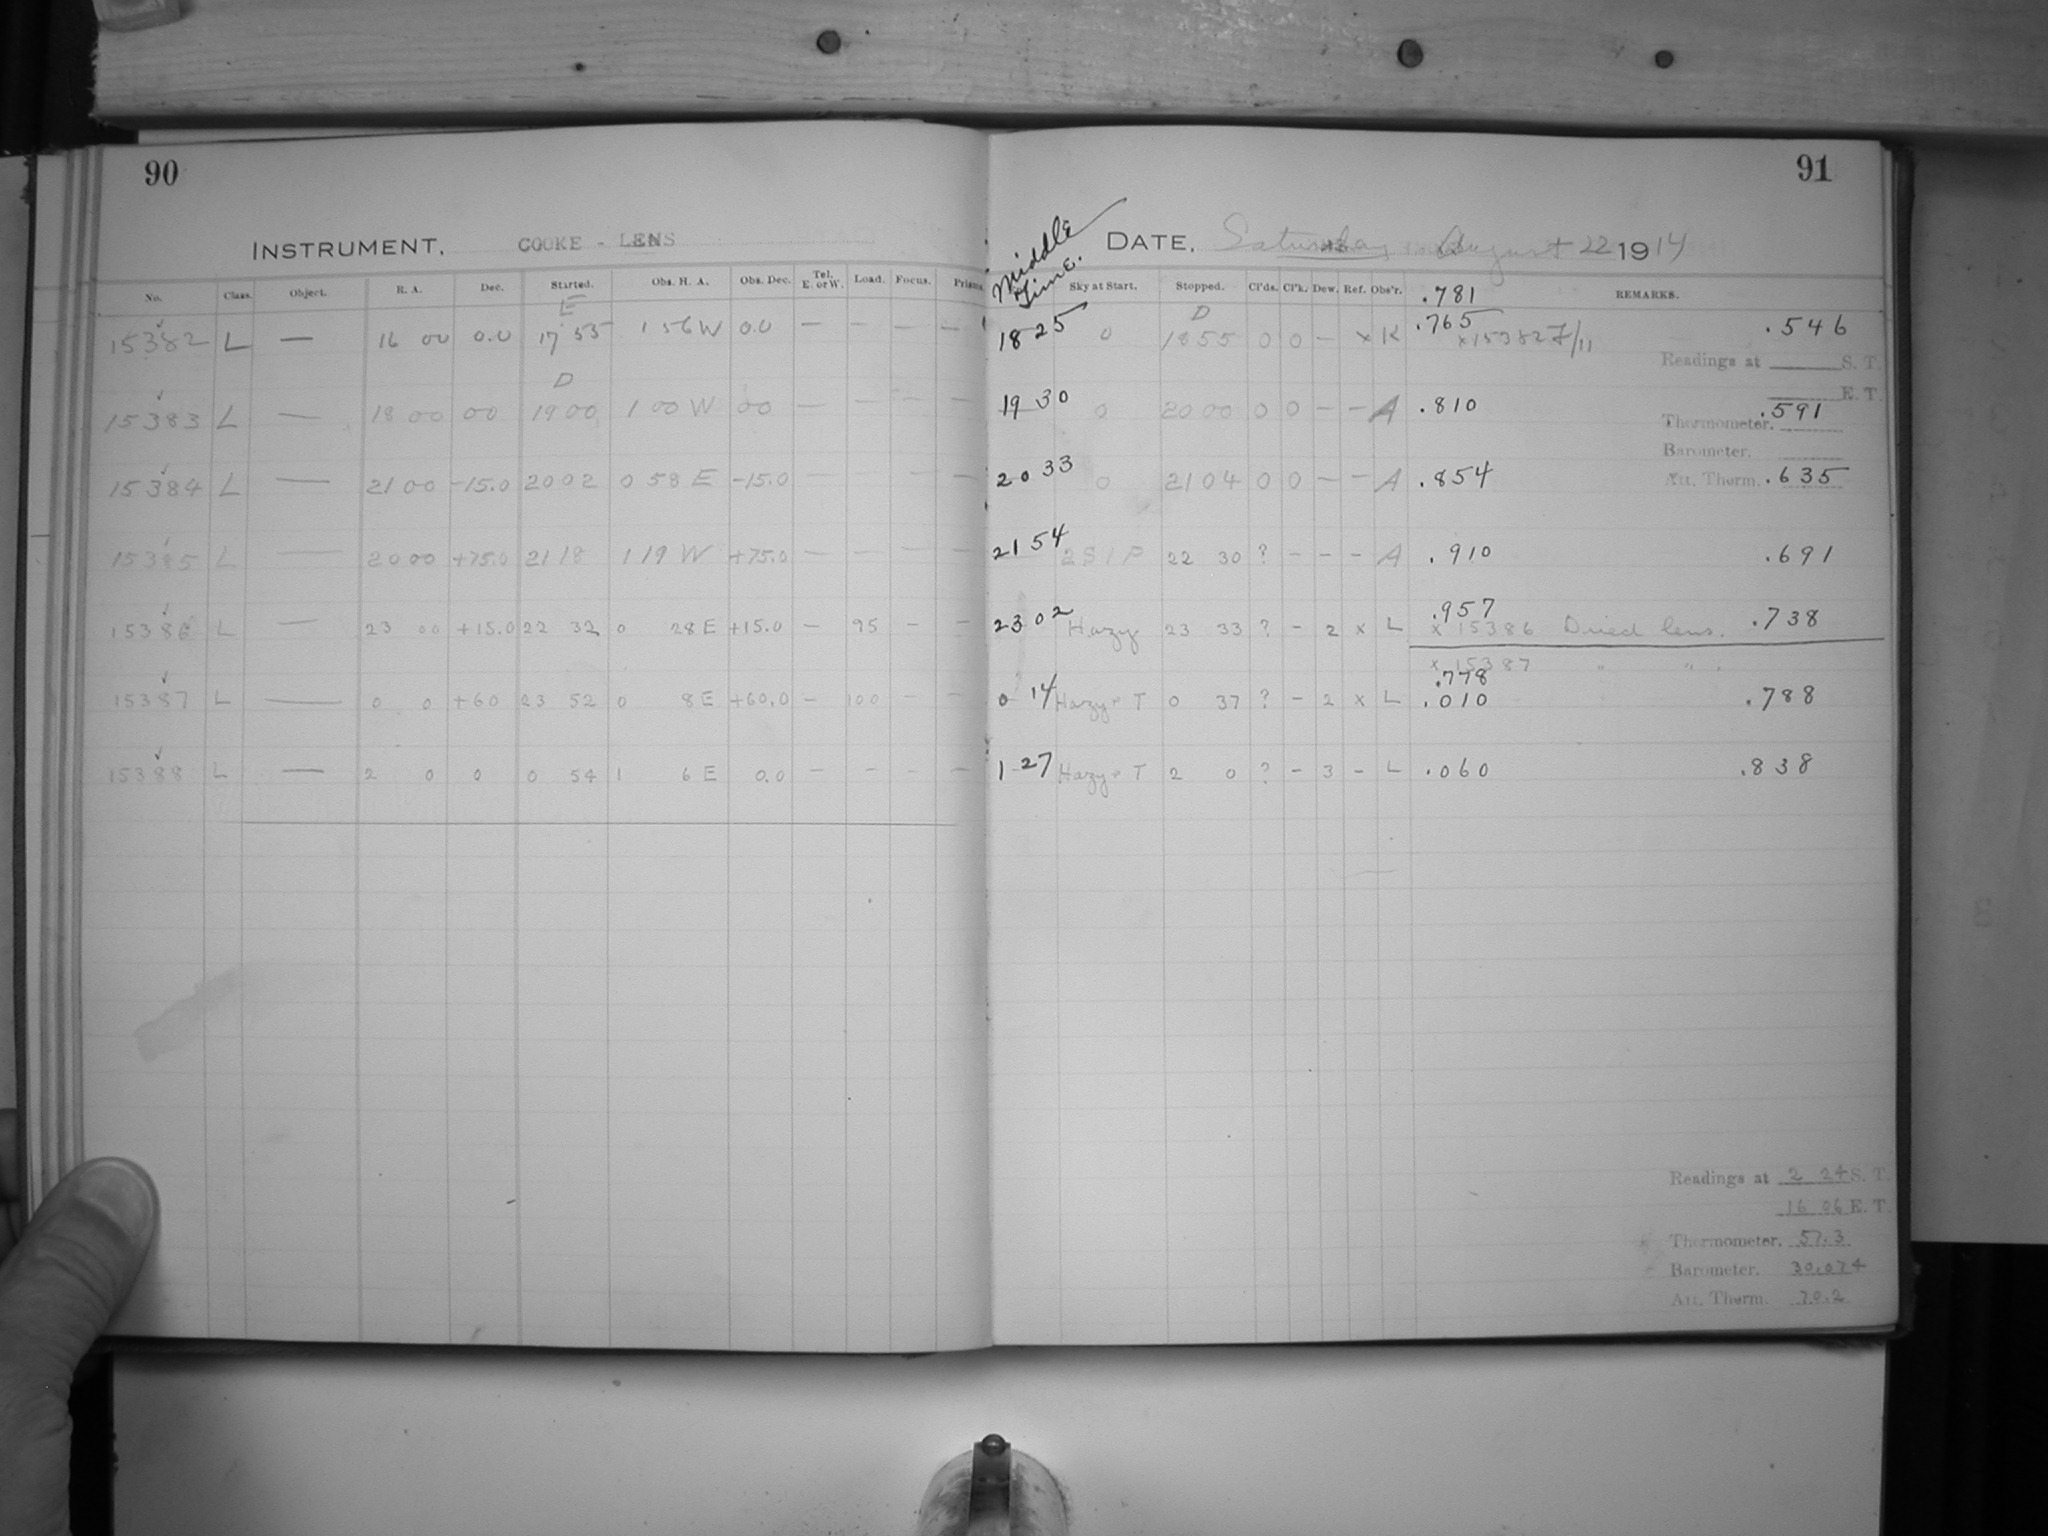 90
91
INSTRUMENT, COOKE - LENS
Middle Time.
DATE, Saturday August 22 1914
No. Class. Object. R. A. Dec. Started. Obs. H. A. Obs. Dec. Tel. E. or W. Load. Focus. Prisms. Sky at Start. Stopped. Cl'ds. Cl'k. Dew. Ref. Obs'r. REMARKS.
.781
E D .765
15382 L — 16 00 0.0 17 55 1 56 W 0.0 — — — — 18 25 0 18 55 0 0 — x K x 15382 F/11 .546
Readings at S. T.
D E. T.
15383 L — 18 00 00 19 00 1 00 W 00 — — — — 19 30 0 20 00 0 0 — — A .810 .591
Thermometer.
Barometer.
15384 L — 21 00 -15.0 20 02 0 58 E -15.0 — — — 20 33 0 21 04 0 0 — — A .854 Att. Therm. .635
15385 L — 20 00 +75.0 21 18 1 19 W +75.0 — — — — 21 54 2 S 1 P 22 30 ? - - - A .910 .691
.957
15386 L — 23 00 +15.0 22 32 0 28 E +15.0 — 95 - - 23 02 Hazy 23 33 ? - 2 x L x 15386 Dried lens. .738
x 15387 " "
.778
15387 L — 0 0 +60 23 52 0 8 E +60.0 — 100 - - 0 14 Hazy + T 0 37 ? - 2 x L .010 .788
15388 L — 2 0 0 0 54 1 6 E 0.0 — - - — 1 27 Hazy + T 2 0 ? - 3 - L .060 .838
Readings at 2 24 S. T.
16 06 E. T.
Thermometer. 57.3
Barometer. 30.074
Att. Therm. 70.2